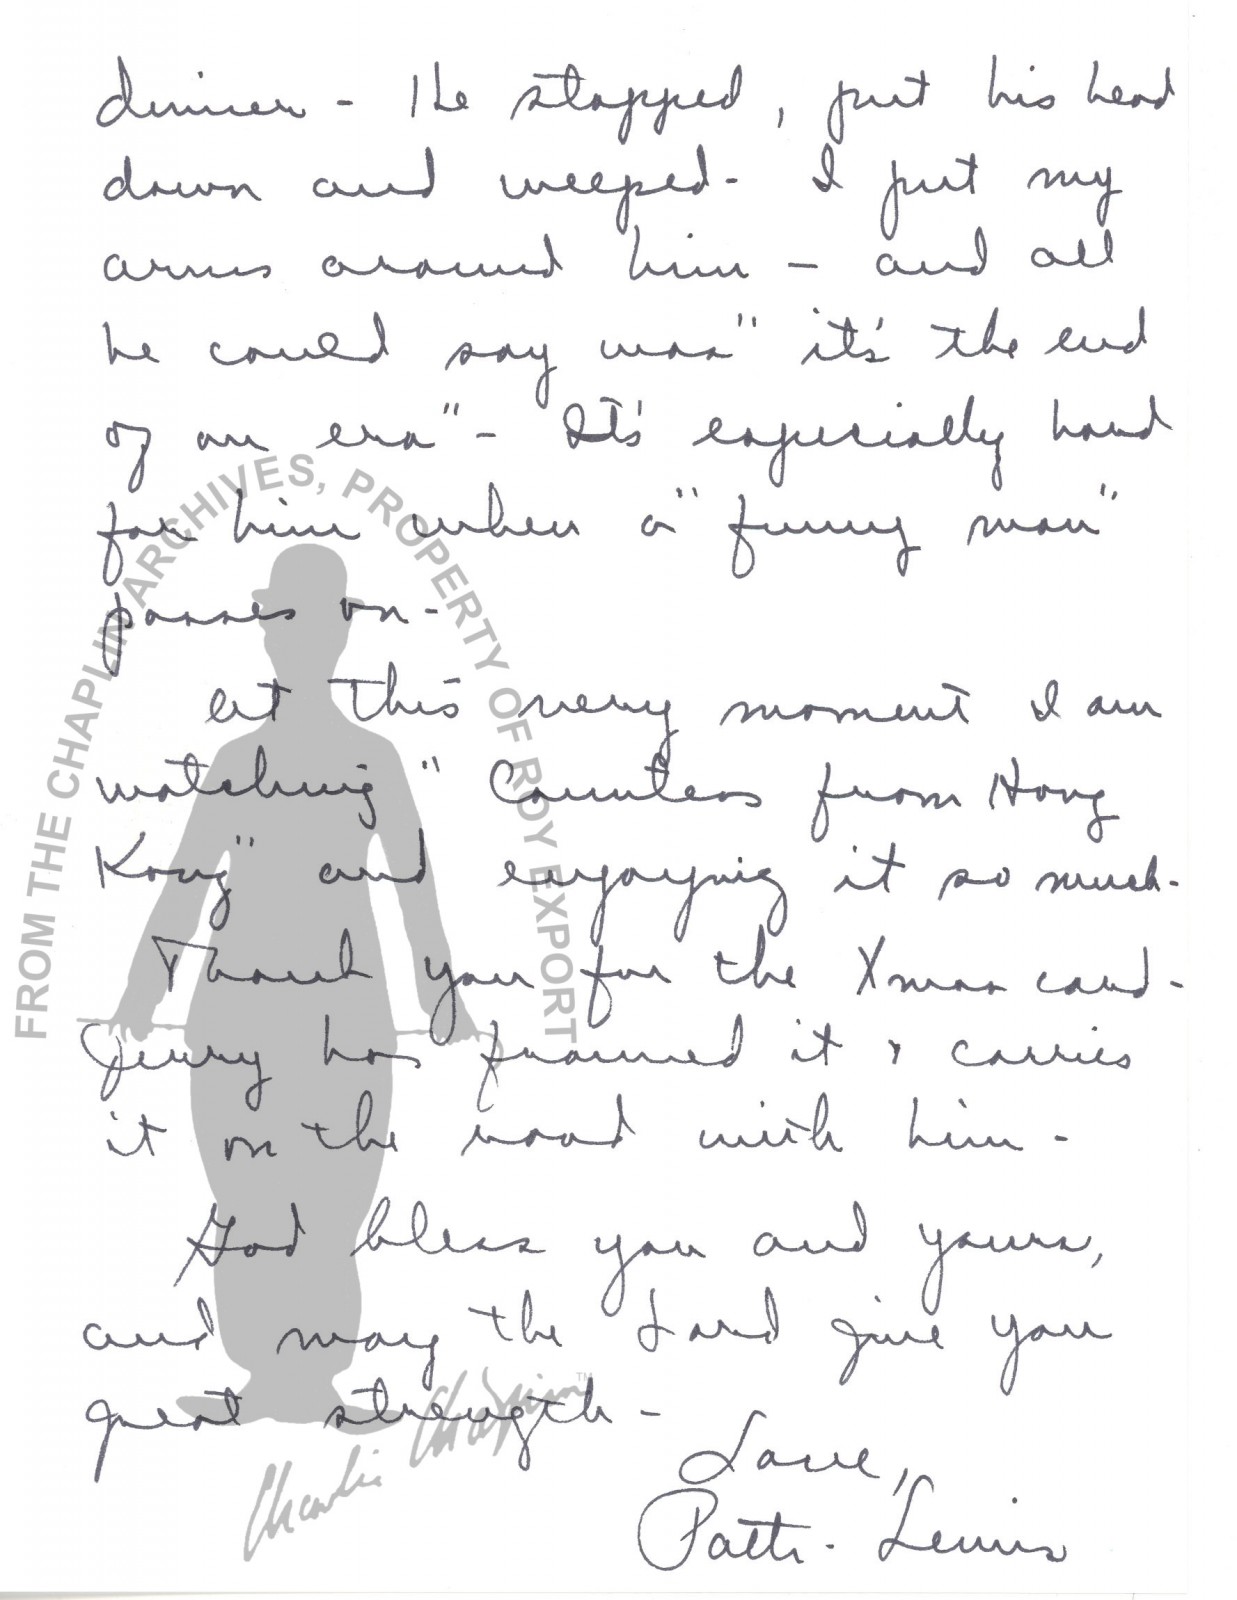 dinner - He stopped, put his head
down and weeped - I put my
arms around him - and all
he could say was "it's the end
of an era" - It's especially hard
for him when a "funny man"
passes on -
At this very moment I am
watching "Countess from Hong
Kong" and enjoying it so much -
Thank you for the Xmas card -
Jerry has framed it & carries
it on the road with him -
God bless you and yours,
and may the Lord give you
great strength -
Love,
Patti - Lewis
FROM THE CHAPLIN ARCHIVES, PROPERTY OF ROY EXPORT
Charlie Chaplin™